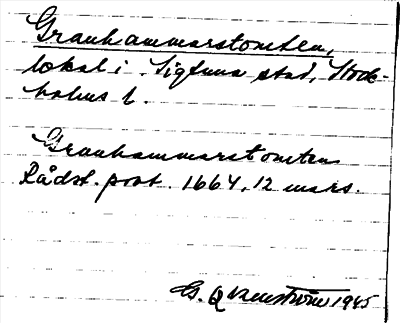 Granhammarstomten,
lokal i Sigtuna stad, Stock-
holms l.
Granhammarstomten
Rådst. prot. 1664, 12 mars.
G. 1945